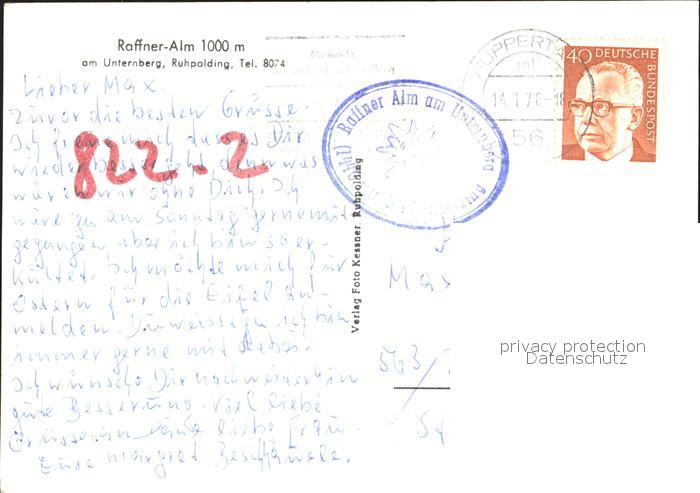 Raffner-Alm 1000 m
am Unternberg, Ruhpolding, Tel. 8074
Lieber Max.
Zuvor die besten Grüsse.
Ich freue mich dass es Dir
wieder besser geht denn was
wären wir ohne Dich. Ich
wäre ja am Sonntag gerne mit
gegangen aber ich bin so er-
kältet. Ich möchte mich für
Ostern für die Eifel an-
melden. Du weisst ja ich bin
immer gerne mit dabei.
Ich wünsche Dir noch weiterhin
gute Besserung. Viel liebe
Grüsse an Deine liebe Frau.
Eure Margret
822-2
Verlag Foto Kessner Ruhpolding
Raffner Alm am Unternberg
WUPPERTA
14.1.76-18
56
40 DEUTSCHE
BUNDESPOST
Max
563/
privacy protection
Datenschutz